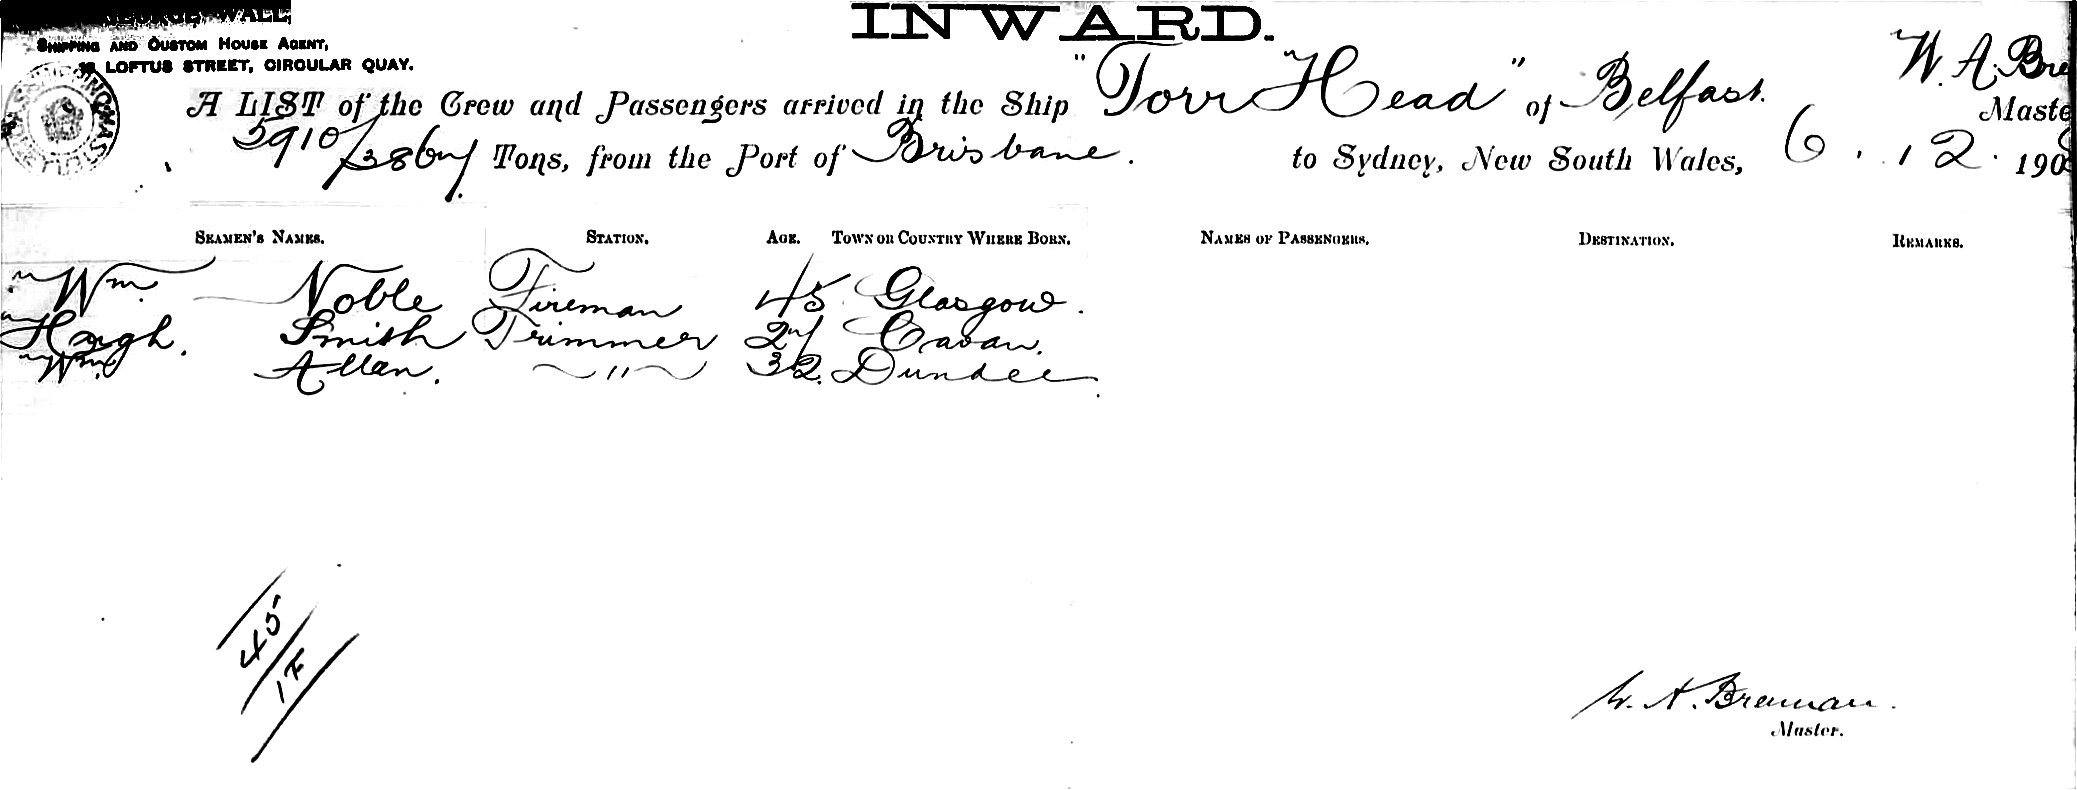 GEORGE WALL,
INWARD.
SHIPPING AND CUSTOM HOUSE AGENT,
LOFTUS STREET, CIRCULAR QUAY.
W. A. Bre
A LIST of the Crew and Passengers arrived in the Ship "Torr Head" of Belfast.
Maste
5910/3869 Tons, from the Port of Brisbane. to Sydney, New South Wales, 6.12.190
SEAMEN'S NAMES. STATION. AGE. TOWN OR COUNTRY WHERE BORN. NAMES OF PASSENGERS. DESTINATION. REMARKS.
" Wm. Noble Fireman 45 Glasgow.
" Hugh. Smith Trimmer 27 Cavan.
" Wm. Allan. " 32. Dundee
45
17
W. A. Brennan.
Master.